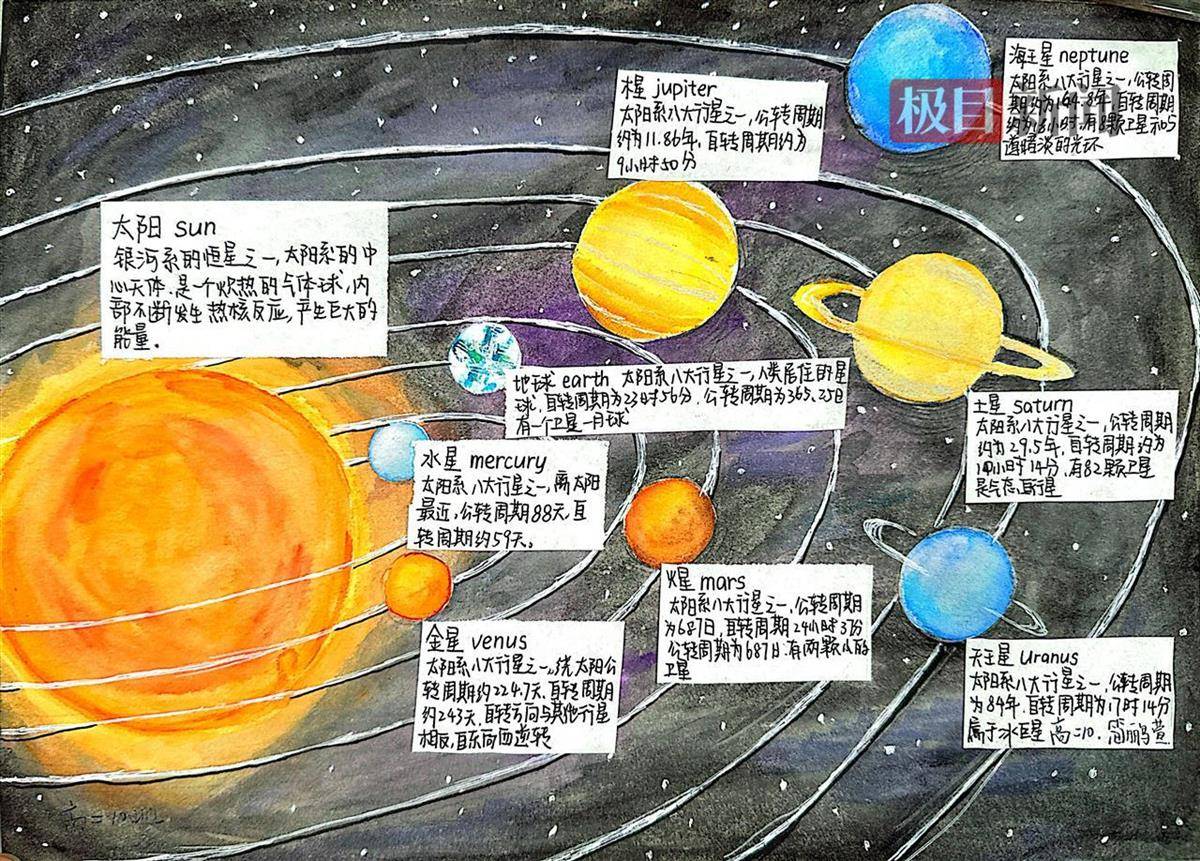 太阳 sun
银河系的恒星之一,太阳系的中
心天体.是一个炽热的气体球,内
部不断发生热核反应,产生巨大的
能量.
木星 jupiter
太阳系八大行星之一,公转周期
约为11.86年,自转周期约为
9小时50分
海王星 neptune
太阳系八大行星之一,公转周
期约为164.8年,自转周期
约为
道暗淡的光环
极目新闻
地球 earth 太阳系八大行星之一,人类居住的星
球,自转周期为23时56分,公转周期为365.25日
有一个卫星—月球
土星 saturn
太阳系八大行星之一,公转周期
约为29.5年,自转周期约为
10小时14分,有82颗卫星
是气态巨行星
水星 mercury
太阳系八大行星之一,离太阳
最近,公转周期88天,自
转周期约59天。
火星 mars
太阳系八大行星之一,公转周期
为687日,自转周期24小时37分
公转周期为687日.有两颗小的
卫星
金星 venus
太阳系八大行星之一,绕太阳公
转周期约224.7天,自转周期
约243天,自转方向与其他行星
相反,自东向西逆转
天王星 Uranus
太阳系八大行星之一,公转周期
为84年,自转周期为17时14分
属于冰巨星 高二10.